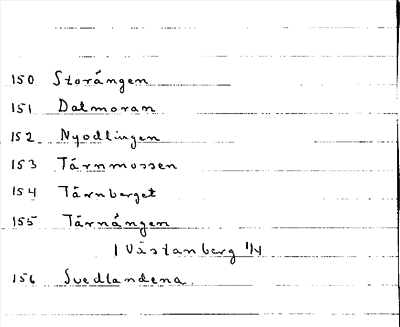 150 Storängen
151 Dalmoran
152 Nyodlingen
153 Tärnmossen
154 Tärnberget
155 Tärnängen
| Västanberg 1/4
156 Svedlandena